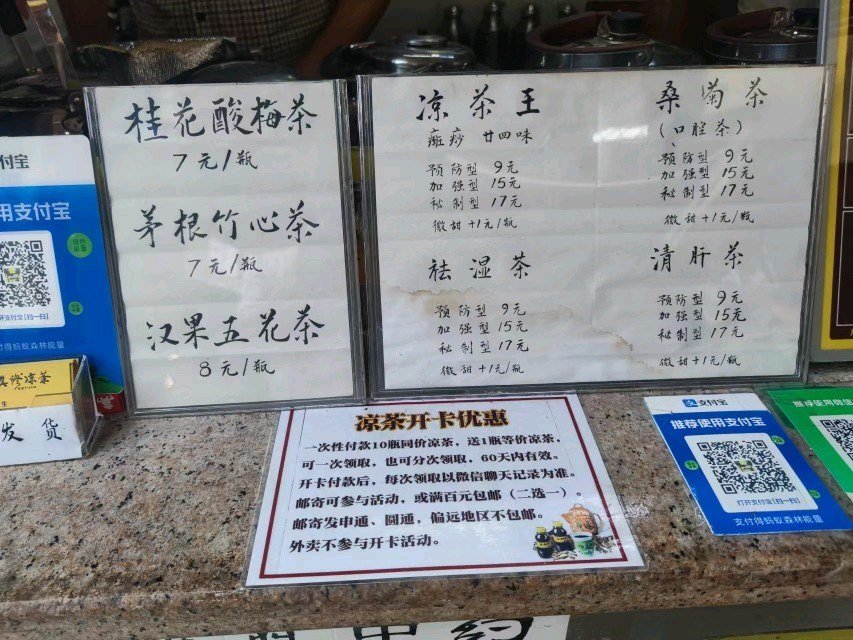 桂花酸梅茶
7元/瓶
茅根竹心茶
7元/瓶
汉果五花茶
8元/瓶
凉茶王
癍痧 廿四味
预防型 9元
加强型 15元
秘制型 17元
微甜+1元/瓶
桑菊茶
(口腔茶)
预防型 9元
加强型 15元
秘制型 17元
微甜+1元/瓶
祛湿茶
预防型 9元
加强型 15元
秘制型 17元
微甜+1元/瓶
清肝茶
预防型 9元
加强型 15元
秘制型 17元
微甜+1元/瓶
付宝
用支付宝
开支付宝[扫一扫]
得蚂蚁森林能量
修凉茶
发货
凉茶开卡优惠
一次性付款10瓶同价凉茶，送1瓶等价凉茶，
可一次领取，也可分次领取，60天内有效。
开卡付款后，每次领取以微信聊天记录为准。
邮寄可参与活动，或满百元包邮（二选一）
邮寄发申通、圆通，偏远地区不包邮。
外卖不参与开卡活动。
支付宝
推荐使用支付宝
打开支付宝[扫一扫]
支付得蚂蚁森林能量
推荐使用微信